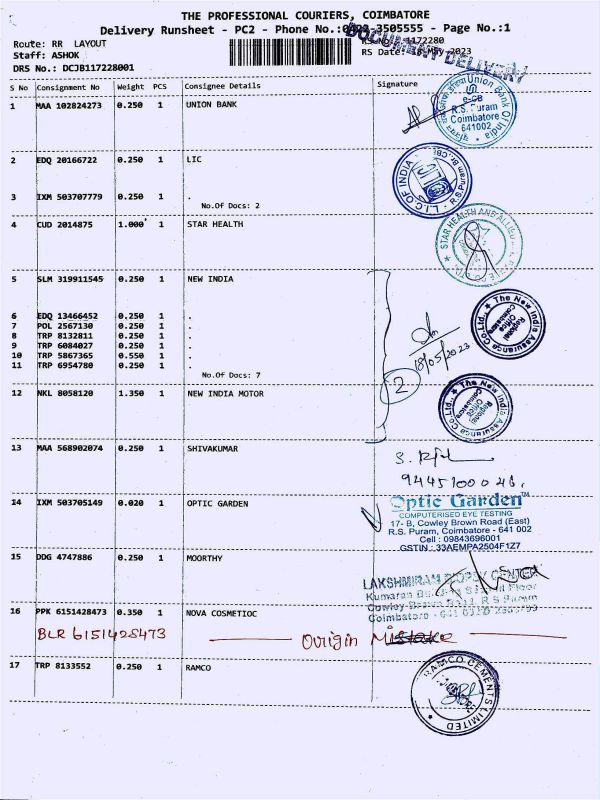 THE PROFESSIONAL COURIERS, COIMBATORE
Delivery Runsheet - PC2 - Phone No.: -3505555 - Page No.:1
DOCUMENT DELIVERY
Route: RR LAYOUT
RS No.: 1172280
Staff: ASHOK
RS Date: -May-2023
DRS No.: DCJB117228001
S No Consignment No Weight PCS Consignee Details Signature
1 MAA 102824273 0.250 1 UNION BANK
Union Bank Of India
e-CB
R.S. Puram
Coimbatore
641002
2 EDQ 20166722 0.250 1 LIC
L.I.C. OF INDIA
R.S.Puram Br.,CBE
3 IXM 503707779 0.250 1 .
No.Of Docs: 2
4 CUD 2014875 1.000 1 STAR HEALTH
STAR HEALTH AND ALLIED
5 SLM 319911545 0.250 1 NEW INDIA
6 EDQ 13466452 0.250 1 .
7 POL 2567130 0.250 1 .
8 TRP 8132811 0.250 1 .
9 TRP 6084027 0.250 1 .
10 TRP 5867365 0.550 1 .
11 TRP 6954780 0.250 1 .
No.Of Docs: 7
The New India Assurance Co.Ltd.,
Regional
Office
Coimbatore
18/05/2023
2
12 NKL 8058120 1.350 1 NEW INDIA MOTOR
The New India Assurance Co.Ltd.,
Regional
Office
Coimbatore
13 MAA 568902074 0.250 1 SHIVAKUMAR
14 IXM 503705149 0.020 1 OPTIC GARDEN
Optic Garden™
COMPUTERISED EYE TESTING
17- B, Cowley Brown Road (East)
R.S. Puram, Coimbatore - 641 002
Cell : 09843696001
GSTIN : 33AEMPA2504F1Z7
15 DDG 4747886 0.250 1 MOORTHY
LAKSHMIRAM BIOPSY CENTER
Kumaran Floor
Cowley Brown Road R S Puram
Coimbatore - 641
16 PPK 6151428473 0.350 1 NOVA COSMETIOC
BLR 6151428473 Origin Mistake
17 TRP 8133552 0.250 1 RAMCO
RAMCO CEMENTS LIMITED